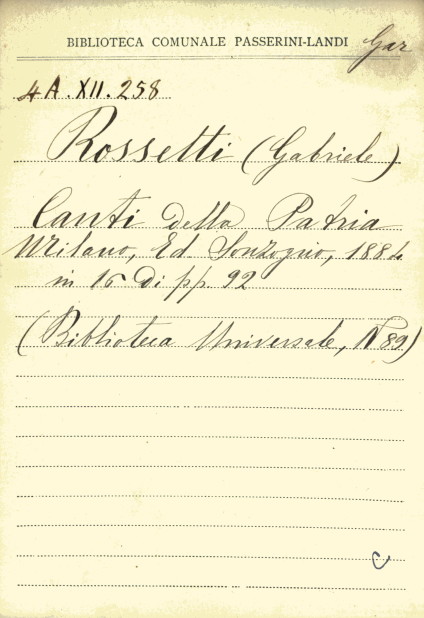 BIBLIOTECA COMUNALE PASSERINI-LANDI Gar
4A.XII.258
Rossetti (Gabriele)
Canti della Patria
Milano, Ed. Sonzogno, 1884
in 16 di pp. 92
(Biblioteca Universale, N 89)
C